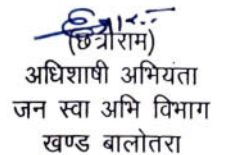 (छत्रीराम)
अधिशाषी अभियंता
जन स्वा अभि विभाग
खण्ड बालोतरा